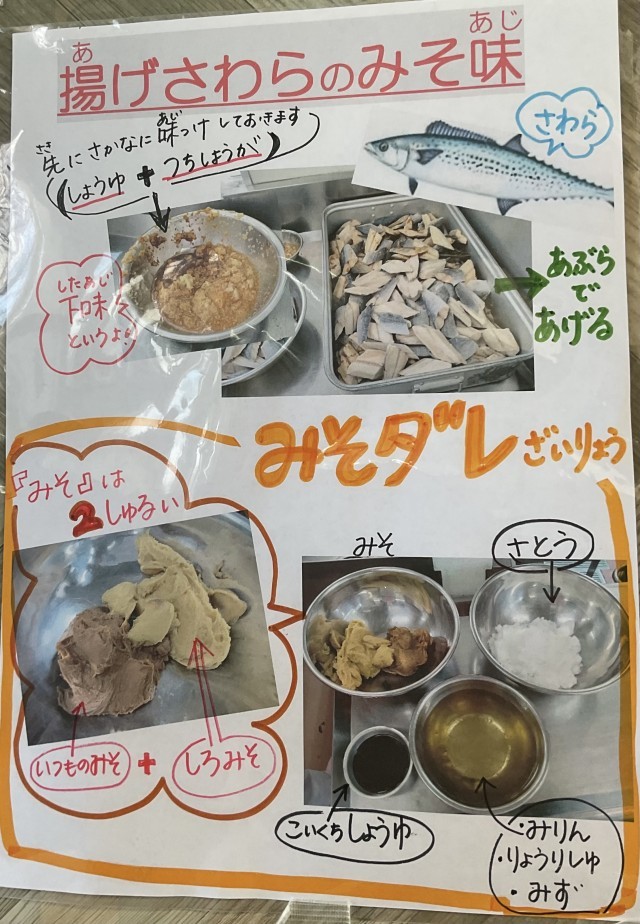 あ あじ
揚げさわらのみそ味
さわら
さき あじ
先にさかなに味つけしておきます
(しょうゆ + つちしょうが)
したあじ
下味と
というよ!
あぶら
で
あげる
みそダレ ざいりょう
『みそ』は
2しゅるい
いつものみそ + しろみそ
みそ
さとう
こいくちしょうゆ
・みりん
・りょうりしゅ
・みず